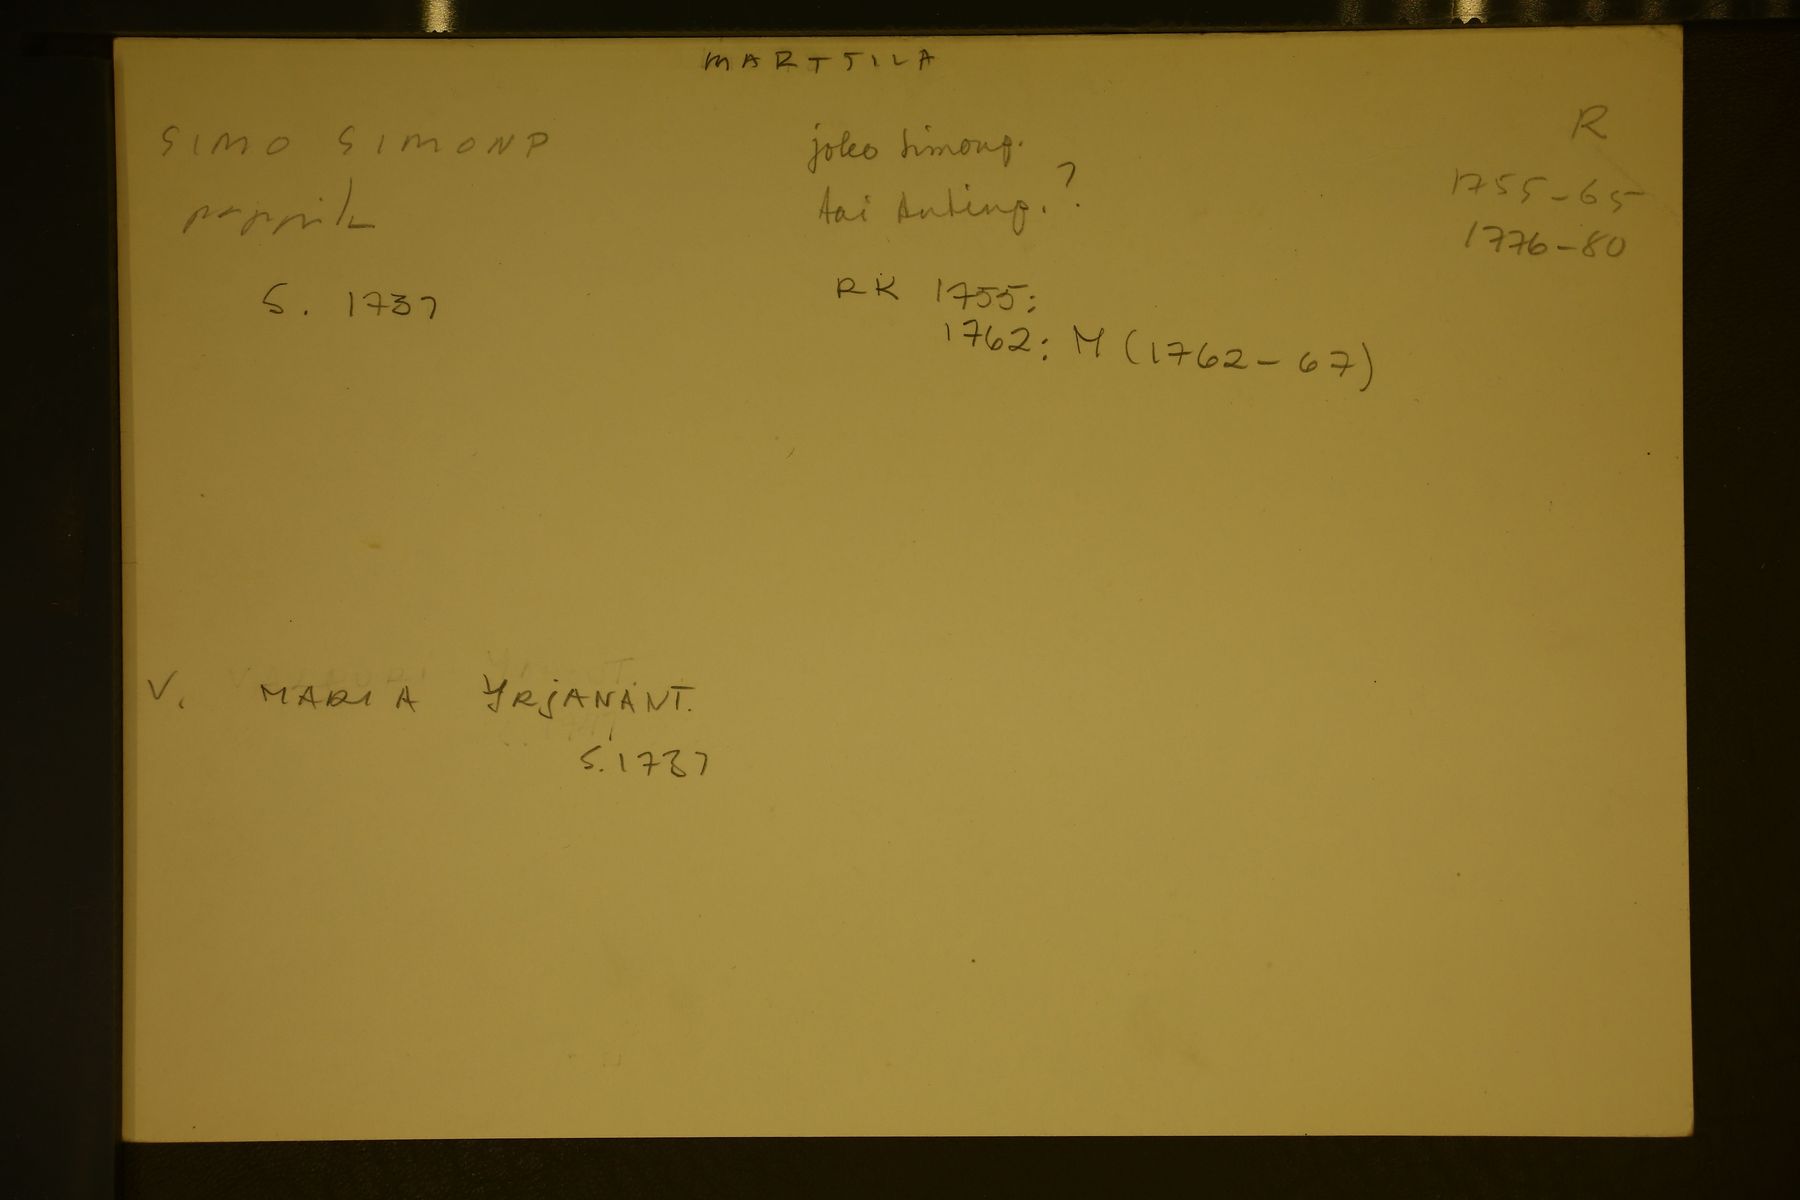 MARTTILA
SIMO SIMONP
joko Simonp.
tai Antinp. ?
R
1755-65
1776-80
S. 1737
RK 1755:
1762: M (1762-67)
V. MARIA YRJÄNÄNT.
S. 1737